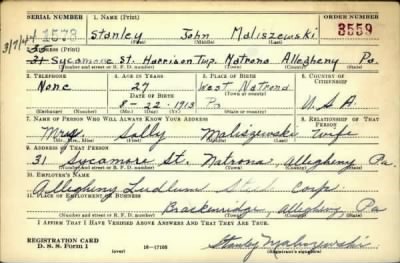 SERIAL NUMBER 1. NAME (Print) ORDER NUMBER
1573 Stanley John Maliszewski 3559
(First) (Middle) (Last)
ADDRESS (Print)
31 Sycamore St. Harrison Twp. Natrona Allegheny Pa.
(Number and street or R. F. D. number) (Town) (County) (State)
3. TELEPHONE 4. AGE IN YEARS 5. PLACE OF BIRTH 6. COUNTRY OF CITIZENSHIP
None 27 West Natrona
DATE OF BIRTH
8-22-1913 Pa U.S.A.
(Exchange) (Number) (Mo.) (Day) (Yr.) (State or country)
7. NAME OF PERSON WHO WILL ALWAYS KNOW YOUR ADDRESS 8. RELATIONSHIP OF THAT PERSON
Mrs. Sally Maliszewski Wife
(Mr., Mrs., Miss) (First) (Middle) (Last)
9. ADDRESS OF THAT PERSON
31 Sycamore St. Natrona, Allegheny Pa.
(Number and street or R. F. D. number) (Town) (County) (State)
10. EMPLOYER'S NAME
Allegheny Ludlum Corp.
11. PLACE OF EMPLOYMENT OR BUSINESS
Brackenridge, Allegheny, Pa
(Number and street or R. F. D. number) (Town) (County) (State)
I AFFIRM THAT I HAVE VERIFIED ABOVE ANSWERS AND THAT THEY ARE TRUE.
REGISTRATION CARD
D. S. S. Form 1 (over) 16-17105 Stanley Maliszewski
(Registrant's signature)